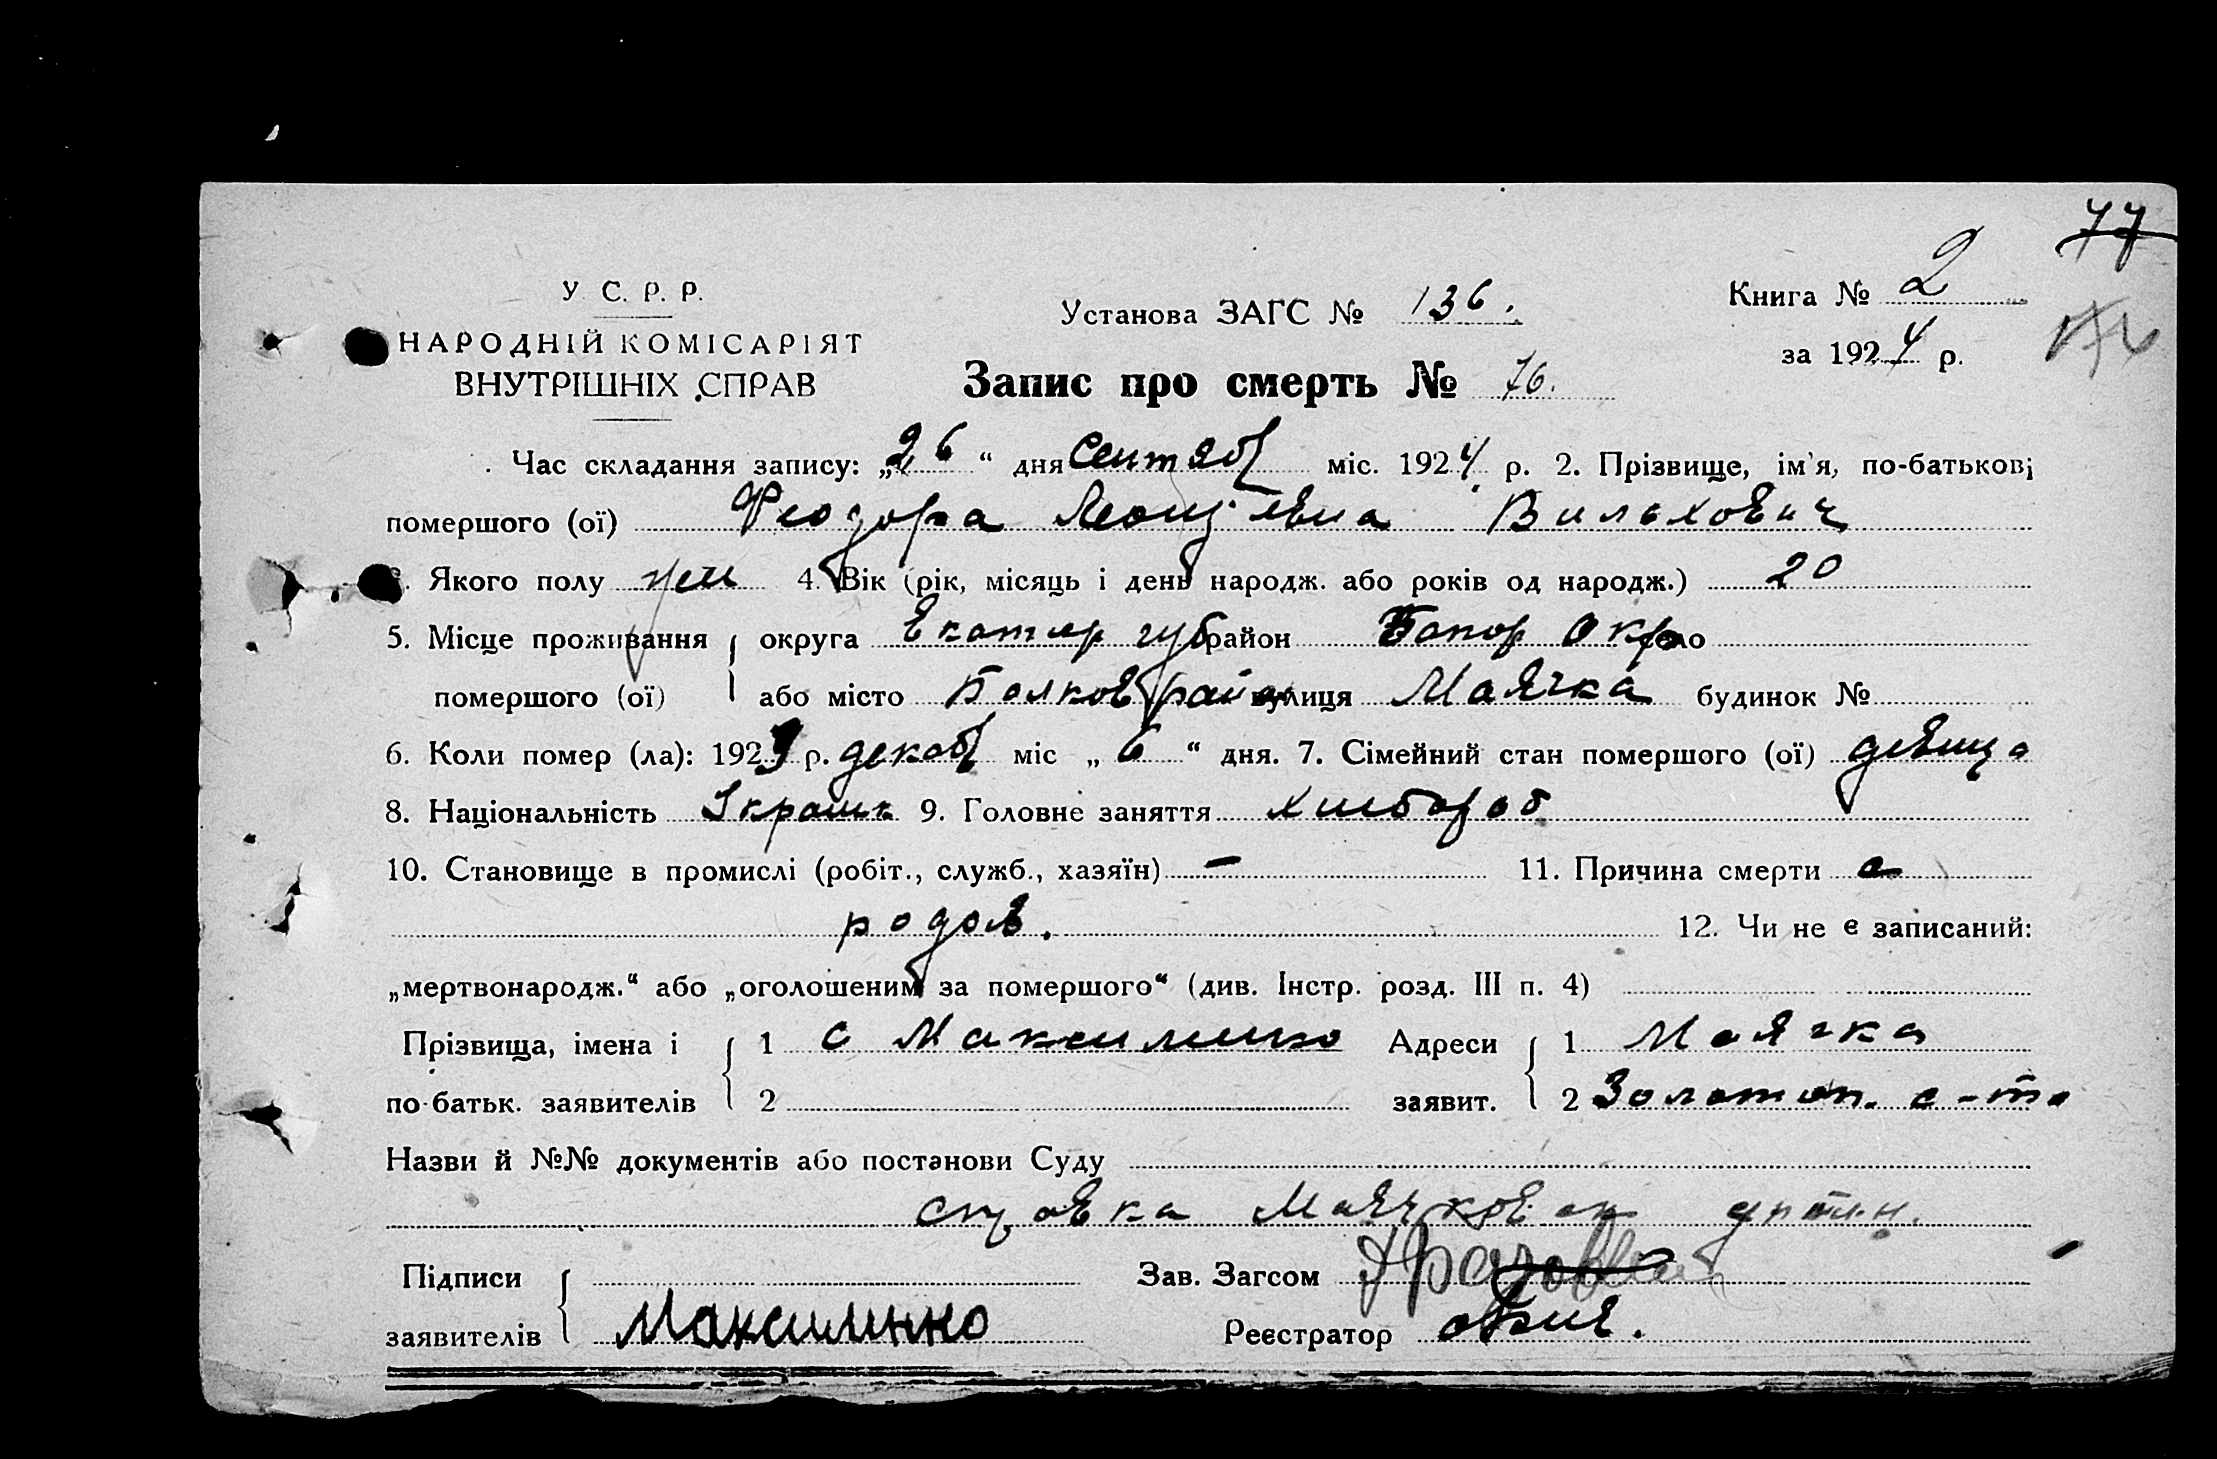 77
У. С. Р. Р.
НАРОДНІЙ КОМІСАРІЯТ
ВНУТРІШНІХ СПРАВ
Установа ЗАГС № 136.
Книга № 2
за 1924 р.
Запис про смерть № 76.
Час складання запису: „26“ дня Сентяб міс. 1924 р. 2. Прізвище, ім'я, по-батькові
помершого (ої) Феодора Леонт'евна Вильхович
3. Якого полу жен 4. Вік (рік, місяць і день народж. або років од народж.) 20
5. Місце проживання округа Екатер губ район Запор Окр село
помершого (ої) або місто Балков район вулиця Маячка будинок №
6. Коли помер (ла): 1923 р. декаб міс „6“ дня. 7. Сімейний стан помершого (ої) девица
8. Національність Украинк 9. Головне заняття хлебороб
10. Становище в промислі (робіт., служб., хазяїн) – 11. Причина смерти от
родов. 12. Чи не є записаний:
„мертвонародж.“ або „оголошеним за помершого“ (див. Інстр. розд. III п. 4)
Прізвища, імена і 1 С Максименко Адреси 1 Маячка
по-батьк. заявителів 2 заявит. 2 Золотоп. с-та
Назви й №№ документів або постанови Суду
справка Маячковск
Підписи Зав. Загсом
заявителів Максименко Реєстратор